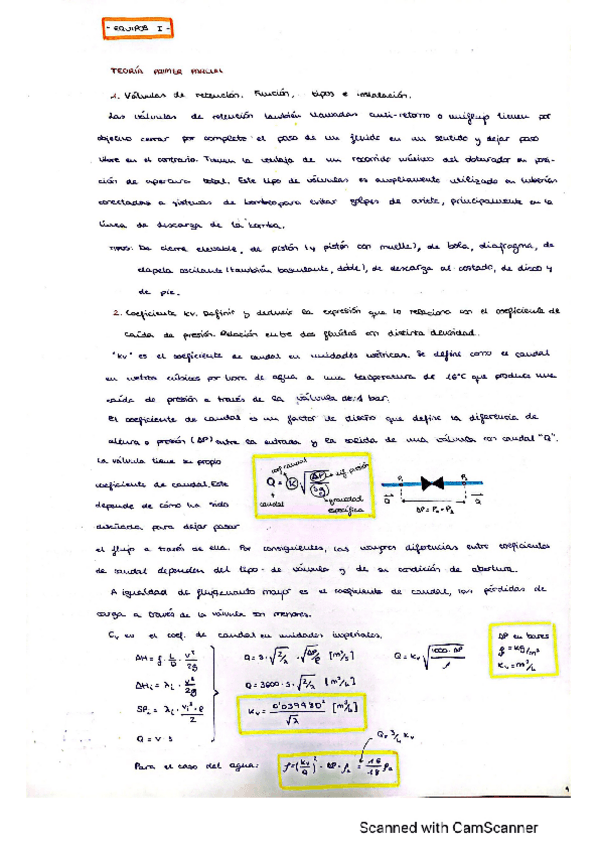 - EQUIPOS I -
TEORÍA PRIMER PARCIAL
1. Válvulas de retención. Función, tipos e instalación.
Las válvulas de retención también llamadas anti-retorno o uniflujo tienen por
objetivo cerrar por completo el paso de un fluido en un sentido y dejar paso
libre en el contrario. Tienen la ventaja de un recorrido mínimo del obturador en posi-
ción de apertura total. Este tipo de válvulas es ampliamente utilizado en tuberías
conectadas a sistemas de bombeo para evitar golpes de ariete, principalmente en la
línea de descarga de la bomba.
TIPOS: De cierre elevable, de pistón (y pistón con muelle), de bola, diafragma, de
clapeta oscilante (también basculante, doble), de descarga al costado, de disco y
de pie.
2. Coeficiente Kv. Definir y deducir la expresión que lo relaciona con el coeficiente de
caída de presión. Relación entre dos fluidos con distinta densidad.
"Kv" es el coeficiente de caudal en unidades métricas. Se define como el caudal
en metros cúbicos por hora de agua a una temperatura de 16°C que produce una
caída de presión a través de la válvula de 1 bar.
El coeficiente de caudal es un factor de diseño que define la diferencia de
altura o presión (ΔP) entre la entrada y la salida de una válvula con caudal "Q".
La válvula tiene su propio
coeficiente de caudal. Este
depende de cómo ha sido
diseñada para dejar pasar
coef caudal
dif presión
Q = K √(ΔP/Sg)
caudal
gravedad
específica
P₁ P₂
Q Q
ΔP = P₁ - P₂
el flujo a través de ella. Por consiguientes, las mayores diferencias entre coeficientes
de caudal dependen del tipo de válvula y de su condición de abertura.
A igualdad de flujo, cuanto mayor es el coeficiente de caudal, las pérdidas de
carga a través de la válvula son menores.
Cv es el coef. de caudal en unidades imperiales.
ΔH = f · L/D · v²/2g
ΔHi = λi · v²/2g
SPi = λi · vi²·ρ/2
Q = v · s
Q = s · √(2/λ) · √(ΔP/ρ) [m³/s]
Q = 3600 · s · √(2/λ) [m³/h]
Kv = 0'039980²/√λ [m³/h]
Q = Kv √(1000 · ΔP/ρ)
ΔP en bares
ρ = kg/m³
Kv = m³/h
Para el caso del agua: